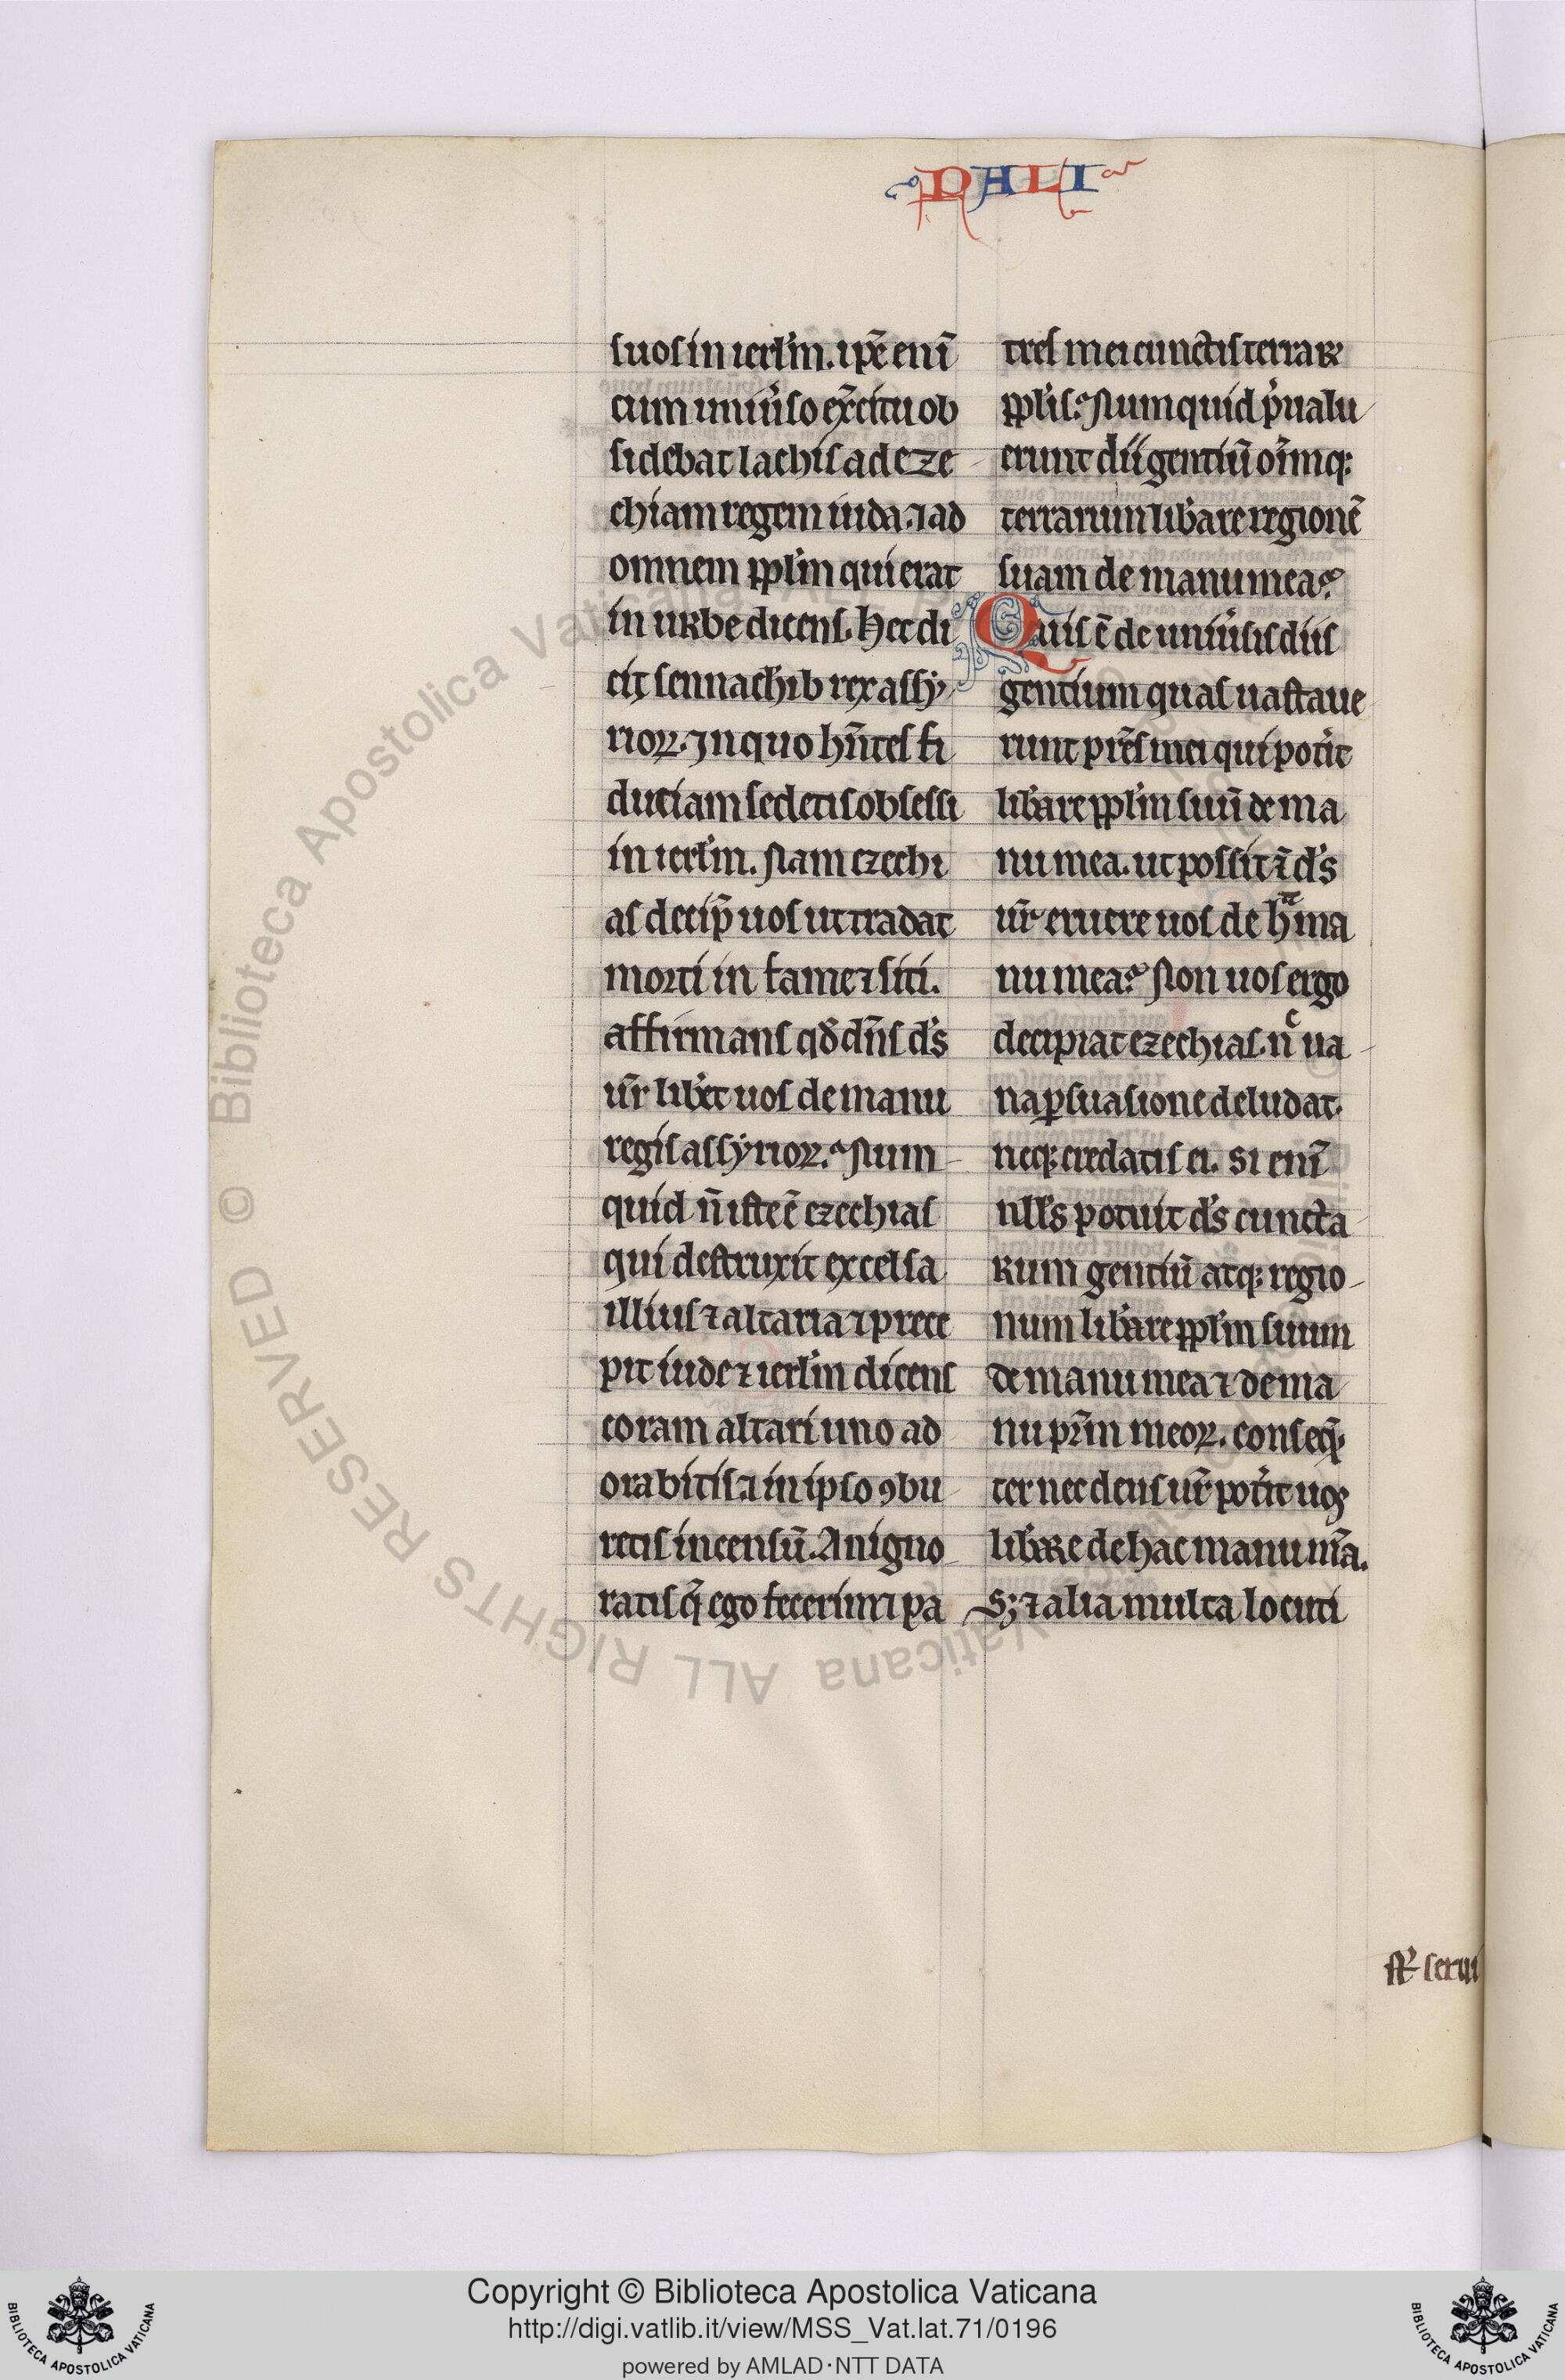 PALI
suos in ierl'm. ip̄e enī
cum uniu'so ex̄citu ob
sidebat lachis ad eze
chiam regem iuda. ⁊ ad
omnem ppl'm qui erat
in urbe dicens. hec di
cit sennach'ib rex assy
rioꝝ. In quo hn̄tes fi
duciam sedetis obsessi
in ierl'm. Nam ezechi
as decip̄ uos ut tradat
morti in fame ⁊ siti.
affirmans qđ dn̄s d's
ur̄ lib'et uos de manu
regis assyrioꝝ. Num
quid n̄ iste ē ezechias
qui destruxit excelsa
illius ⁊ altaria ⁊ prece
pit iude ⁊ ierl'm dicens
coram altari uno ad
orabitis. ⁊ in ipso ꝯbu
retis incensū. An igno
ratis q̄ ego fecerim ⁊ pa
tres mei cunctis terraꝝ
ppl'is. Numquid p'ualu
erunt dii gentiū om̄iūq;
terrarum lib'are regionē
suam de manu mea?
Quis ē de uniu'sis diis
gentium quas uastaue
runt pr̄es mei qui pot'it
lib'are ppl'm suū de ma
nu mea. ut possit ⁊ d's
ur̄ eruere uos de hᵃ ma
nu mea? Non uos ergo
decipiat ezechias. nᶜ ua
na ꝑsuasione deludat.
neq; credatis ei. Si enī
nll's potuit d's cuncta
rum gentiū atq; regio
num lib'are ppl'm suum
de manu mea ⁊ de ma
nu pr̄m meoꝝ. conseq̄n
ter nec deus ur̄ pot'it uos
lib'are de hac manu m̄a.
Sꝫ ⁊ alia multa locuti
st' serui
Copyright © Biblioteca Apostolica Vaticana
http://digi.vatlib.it/view/MSS_Vat.lat.71/0196
powered by AMLAD·NTT DATA
BIBLIOTECA APOSTOLICA VATICANA
BIBLIOTECA APOSTOLICA VATICANA
© Biblioteca Apostolica Vaticana ALL RIGHTS RESERVED